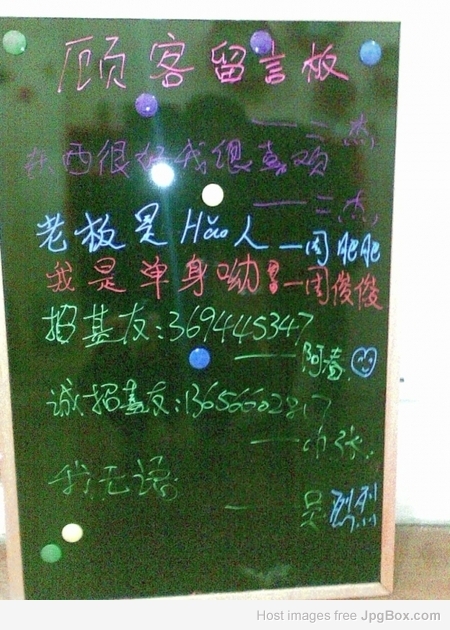 顾客留言板
——二杰
东西很好我很喜欢
——二杰
老板是Hǎo人—周肥肥
我是单身呦!—周俊俊
招基友:369445347
——阿春
诚招基友:13656602817
——巾张
我无语
——吴烈烈
Host images free JpgBox.com